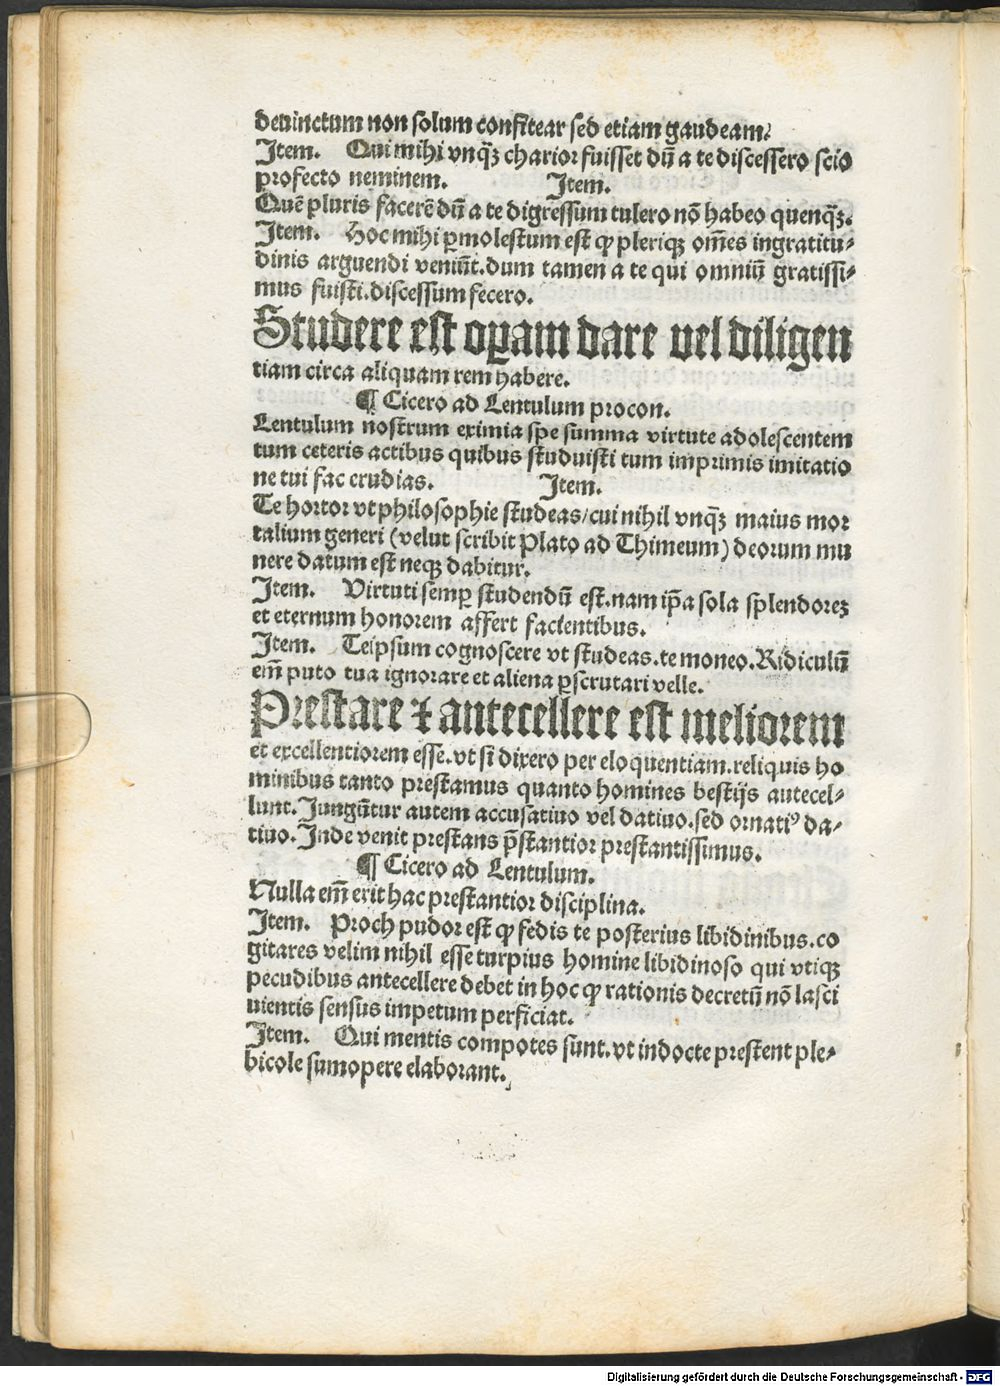 deuinctum non solum confitear sed etiam gaudeam.
Item. Qui mihi vnqꝫ charior fuisset dū a te discessero scio
profecto neminem. Item.
Quē pluris facerē dū a te digressum tulero nō habeo quenqꝫ.
Item. Hoc mihi ꝑmolestum est ꝙ pleriqꝫ om̄es ingratitu-
dinis arguendi veniūt.dum tamen a te qui omniū gratissi-
mus fuisti.discessum fecero.
Studere est oꝑam dare vel diligen
tiam circa aliquam rem habere.
¶ Cicero ad Lentulum procon.
Lentulum nostrum eximia spe summa virtute adolescentem
tum ceteris actibus quibus studuisti tum imprimis imitatio
ne tui fac erudias. Item.
Te hortor vt philosophie studeas/cui nihil vnqꝫ maius mor
talium generi (velut scribit Plato ad Thimeum) deorum mu
nere datum est neqꝫ dabitur.
Item. Virtuti semꝑ studendū est.nam ip̄a sola splendoreꝫ
et eternum honorem affert facientibus.
Item. Teipsum cognoscere vt studeas.te moneo.Ridiculū
em̄ puto tua ignorare et aliena ꝑscrutari velle.
Prestare ⁊ antecellere est meliorem
et excellentiorem esse.vt si dixero per eloquentiam.reliquis ho
minibus tanto prestamus quanto homines bestijs antecel-
lunt.Jungūtur autem accusatiuo vel datiuo.sed ornatiꝰ da-
tiuo.Inde venit prestans p̄stantior prestantissimus.
¶ Cicero ad Lentulum.
Nulla em̄ erit hac prestantior disciplina.
Item. Proch pudor est ꝙ fedis te posterius libidinibus.co
gitares velim nihil esse turpius homine libidinoso qui vtiqꝫ
pecudibus antecellere debet in hoc ꝙ rationis decretū nō lasci
uientis sensus impetum perficiat.
Item. Qui mentis compotes sunt.vt indocte prestent ple-
bicole sumopere elaborant.
Digitalisierung gefördert durch die Deutsche Forschungsgemeinschaft - DFG